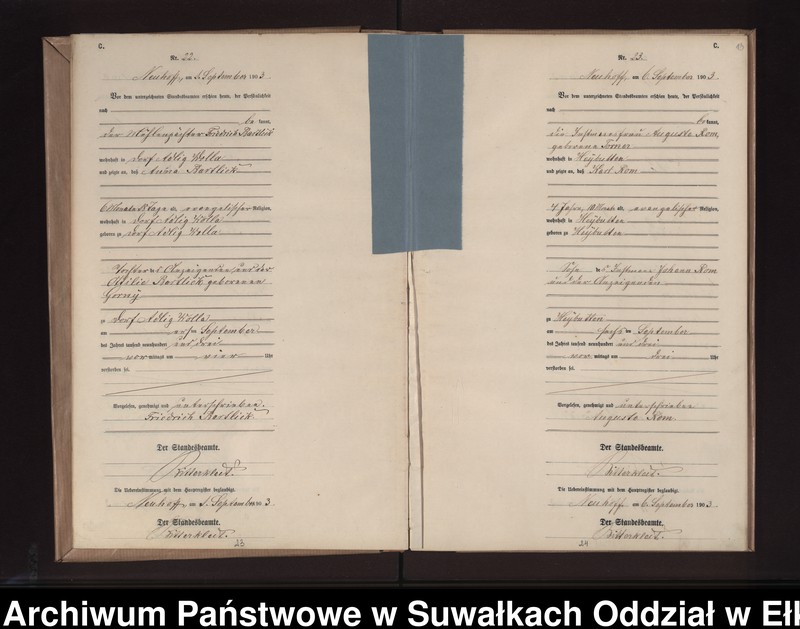 C.
Nr. 22.
Neuhoff, am 1. September 1903.
Vor dem unterzeichneten Standesbeamten erschien heute, der Persönlichkeit
nach
be kannt,
der Mühlenpächter Friedrich Bartlick
wohnhaft in Dorf Adlig Wolla
und zeigte an, daß Bartlick
6 Monate Tage a, evangelischer Religion,
wohnhaft in Dorf Adlig Wolla
geboren zu Dorf Adlig Wolla
Tochter des Anzeigenden und der
Ottilie Bartlick geborenen
Gorny
zu Dorf Adlig Wolla
am ersten September
des Jahres tausend neunhundert und drei
vor mittags um vier Uhr
verstorben sei.
Vorgelesen, genehmigt und unterschrieben.
Friedrich Bartlick
Der Standesbeamte.
Die Uebereinstimmung mit dem Hauptregister beglaubigt.
Neuhoff, am 1. September 1903.
Der Standesbeamte.
23
C.
Nr. 23.
Neuhoff, am 6. September 1903.
Vor dem unterzeichneten Standesbeamten erschien heute, der Persönlichkeit
nach
be kannt,
die Instmannsfrau Auguste Rom
geborene
wohnhaft in Heybutten
und zeigte an, daß Karl Rom
4 Jahre, 10 Monate alt, evangelischer Religion,
wohnhaft in Heybutten
geboren zu Heybutten
Sohn des Instmann Johann Rom
und der Anzeigenden
zu Heybutten
am sechsten September
des Jahres tausend neunhundert und drei
vor mittags um drei Uhr
verstorben sei.
Vorgelesen, genehmigt und unterschrieben
Auguste Rom
Der Standesbeamte.
Die Uebereinstimmung mit dem Hauptregister beglaubigt.
Neuhoff, am 6. September 1903.
Der Standesbeamte.
24
Archiwum Państwowe w Suwałkach Oddział w Ełk